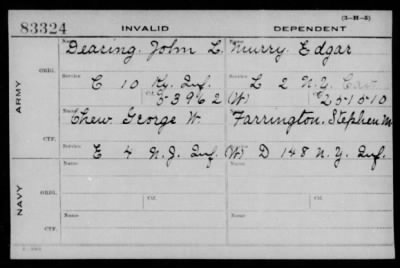 (3-H-5)
83324 INVALID DEPENDENT
Name Name
Dearing, John L. Murry, Edgar
ARMY ORIG. Service Service
C 10 Ky. Inf. L 2 N.Y. Cav
Ctf. 53962 (W) 251510
Name Name
Chew George W. Farrington, Stephen M.
CTF. Service Service
E 4 N.J. Inf. (W) D 148 N.Y. Inf.
Name Name
NAVY ORIG. Service Ctf. Service Ctf.
Name Name
CTF. Service Service